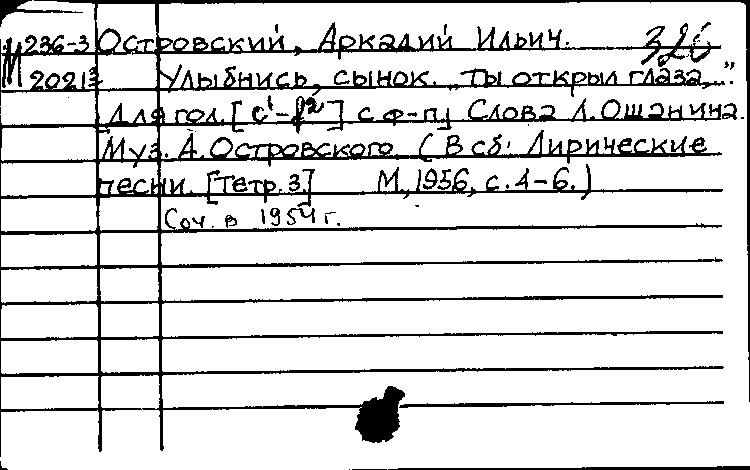 М 236-3 Островский, Аркадий Ильич. 326
2021 Улыбнись, сынок. „Ты открыл глаза,..."
[Для гол. [c¹-f²] с ф-п] Слова Л. Ошанина.
Муз. А. Островского. (В сб: Лирические
песни. [Тетр. 3.] М, 1956, с. 4-6.)
Соч. в 1954 г.